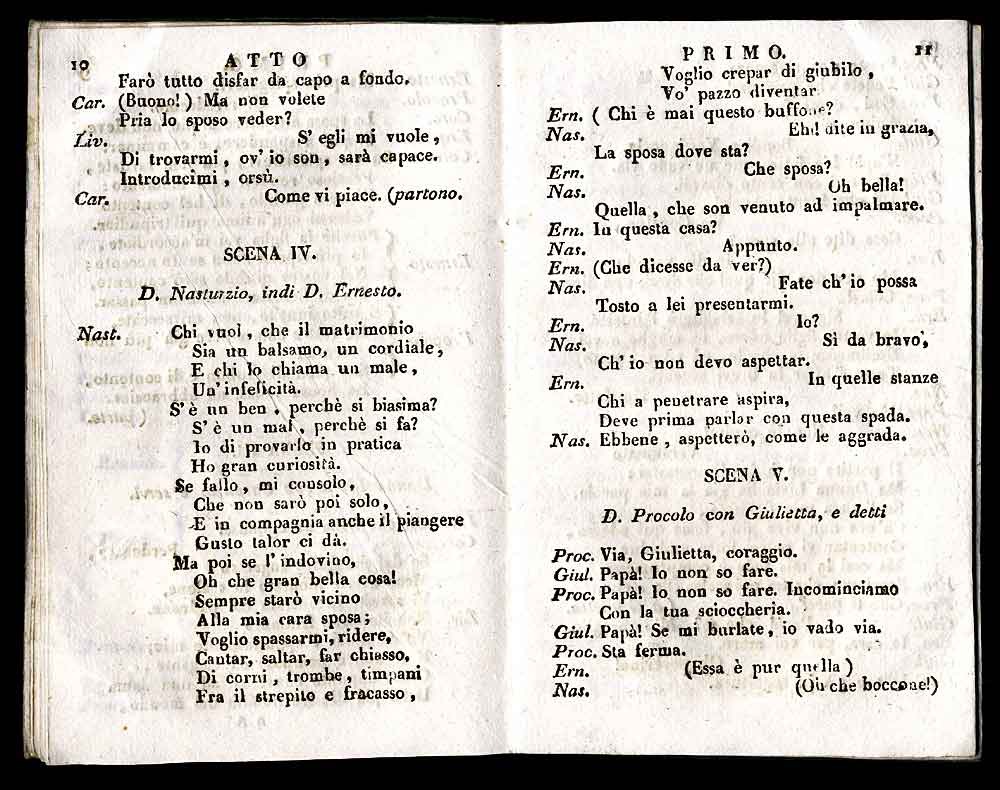 10 ATTO
Farò tutto disfar da capo a fondo.
Car. (Buono!) Ma non volete
Pria lo sposo veder?
Liv. S' egli mi vuole,
Di trovarmi, ov' io son, sarà capace.
Introducimi, orsù.
Car. Come vi piace. (partono.
SCENA IV.
D. Nasturzio, indi D. Ernesto.
Nast. Chi vuol, che il matrimonio
Sia un balsamo, un cordiale,
E chi lo chiama un male,
Un' infelicità.
S' è un ben, perchè si biasima?
S' è un mal, perchè si fa?
Io di provarlo in pratica
Ho gran curiosità.
Se fallo, mi consolo,
Che non sarò poi solo,
E in compagnia anche il piangere
Gusto talor ci dà.
Ma poi se l' indovino,
Oh che gran bella cosa!
Sempre starò vicino
Alla mia cara sposa;
Voglio spassarmi, ridere,
Cantar, saltar, far chiasso,
Di corni, trombe, timpani
Fra il strepito e fracasso,
PRIMO. 11
Voglio crepar di giubilo,
Vo' pazzo diventar
Ern. ( Chi è mai questo buffone?
Nas. Eh! dite in grazia,
La sposa dove sta?
Ern. Che sposa?
Nas. Oh bella!
Quella, che son venuto ad impalmare.
Ern. In questa casa?
Nas. Appunto.
Ern. (Che dicesse da ver?)
Nas. Fate ch' io possa
Tosto a lei presentarmi.
Ern. Io?
Nas. Sì da bravo,
Ch' io non devo aspettar.
Ern. In quelle stanze
Chi a penetrare aspira,
Deve prima parlar con questa spada.
Nas. Ebbene, aspetterò, come le aggrada.
SCENA V.
D. Procolo con Giulietta, e detti
Proc. Via, Giulietta, coraggio.
Giul. Papà! Io non so fare.
Proc. Papà! Io non so fare. Incominciamo
Con la tua scioccheria.
Giul. Papà! Se mi burlate, io vado via.
Proc. Sta ferma.
Ern. (Essa è pur quella)
Nas. (Oh che boccone!)